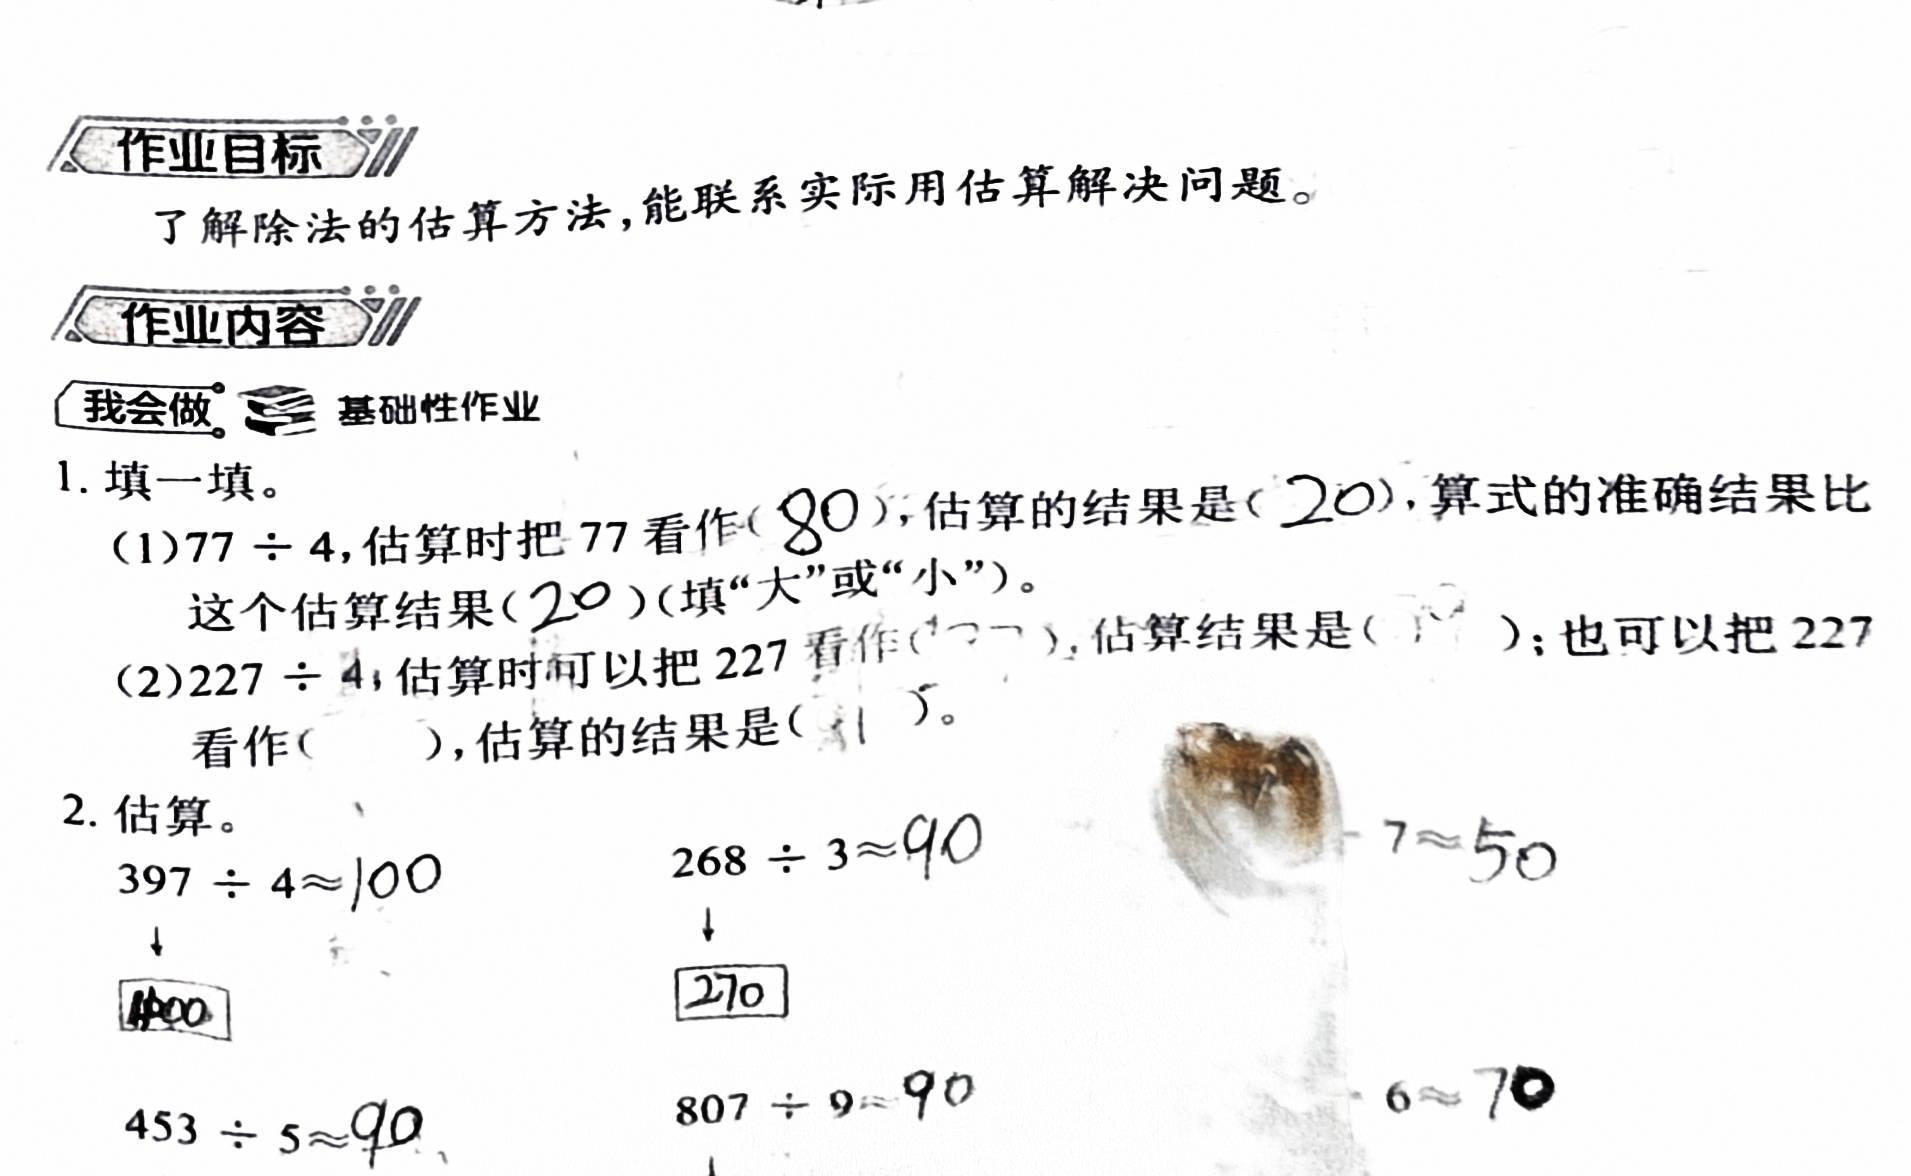 作业目标
了解除法的估算方法,能联系实际用估算解决问题。
作业内容
我会做 基础性作业
1. 填一填。
(1)77 ÷ 4,估算时把 77 看作(80),估算的结果是(20),算式的准确结果比
这个估算结果(20)(填“大”或“小”)。
(2)227 ÷ 4,估算时可以把 227 看作( ),估算结果是( );也可以把 227
看作( ),估算的结果是( )。
2. 估算。
397 ÷ 4≈100 268 ÷ 3≈90 7≈50
400 270
453 ÷ 5≈90 807 ÷ 9≈90 6≈70